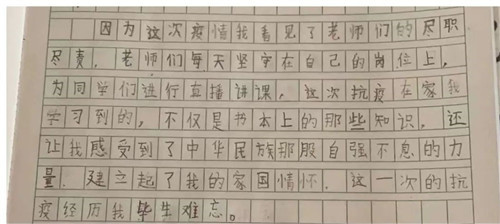 因为这次疫情我看见了老师们的尽职
尽责，老师们每天坚守在自己的岗位上，
为同学们进行直播讲课，这次抗疫在家我
学习到的，不仅是书本上的那些知识，还
让我感受到了中华民族那股自强不息的力
量，建立起了我的家国情怀，这一次的抗
疫经历我毕生难忘。